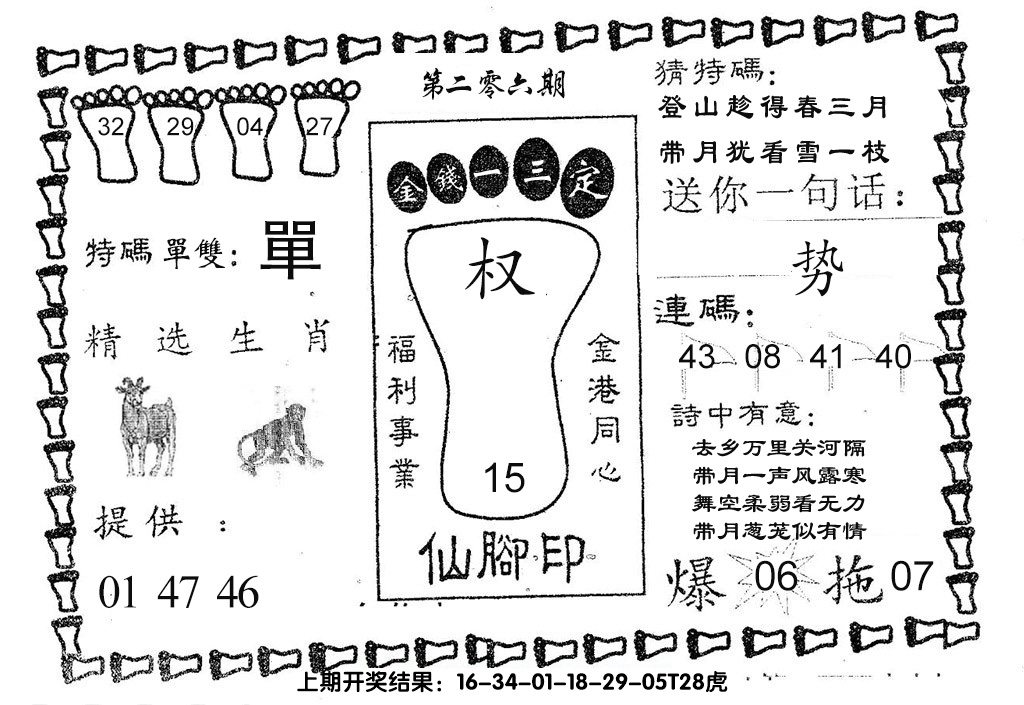 第二零六期
32 29 04 27
特碼單雙: 單
精选生肖
提供 :
01 47 46
金錢一三定
权
福利事業
金港同心
15
仙腳印
猜特碼:
登山趁得春三月
带月犹看雪一枝
送你一句话:
势
連碼:
43 08 41 40
詩中有意:
去乡万里关河隔
带月一声风露寒
舞空柔弱看无力
带月葱茏似有情
爆 06 拖 07
上期开奖结果：16-34-01-18-29-05T28虎